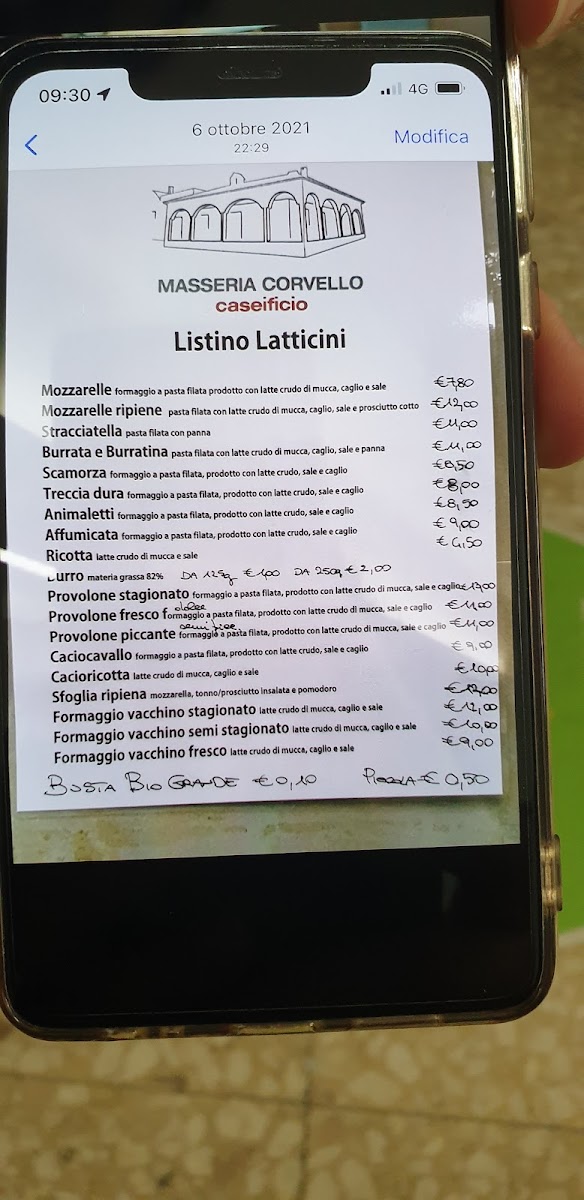 09:30 4G
6 ottobre 2021 Modifica
22:29
MASSERIA CORVELLO
caseificio
Listino Latticini
Mozzarelle formaggio a pasta filata prodotto con latte crudo di mucca, caglio e sale €7,80
Mozzarelle ripiene pasta filata con latte crudo di mucca, caglio, sale e prosciutto cotto €12,00
Stracciatella pasta filata con panna €11,00
Burrata e Burratina pasta filata con latte crudo di mucca, caglio, sale e panna €11,00
Scamorza formaggio a pasta filata, prodotto con latte crudo, sale e caglio €8,50
Treccia dura formaggio a pasta filata, prodotto con latte crudo, sale e caglio €8,00
Animaletti formaggio a pasta filata, prodotto con latte crudo, sale e caglio €8,50
Affumicata formaggio a pasta filata, prodotto con latte crudo, sale e caglio €9,00
Ricotta latte crudo di mucca e sale €4,50
Burro materia grassa 82% DA 125g €1,00 DA 250g €2,00
Provolone stagionato formaggio a pasta filata, prodotto con latte crudo di mucca, sale e caglio
Provolone fresco dolce formaggio a pasta filata, prodotto con latte crudo di mucca, sale e caglio €11,00
Provolone piccante formaggio a pasta filata, prodotto con latte crudo di mucca, sale e caglio €11,00
Caciocavallo formaggio a pasta filata, prodotto con latte crudo, sale e caglio €9,00
Cacioricotta latte crudo di mucca, caglio e sale €10,00
Sfoglia ripiena mozzarella, tonno/prosciutto insalata e pomodoro €12,00
Formaggio vacchino stagionato latte crudo di mucca, caglio e sale €12,00
Formaggio vacchino semi stagionato latte crudo di mucca, caglio e sale €10,00
Formaggio vacchino fresco latte crudo di mucca, caglio e sale €9,00
BUSTA BIO GRANDE €0,10 €0,50